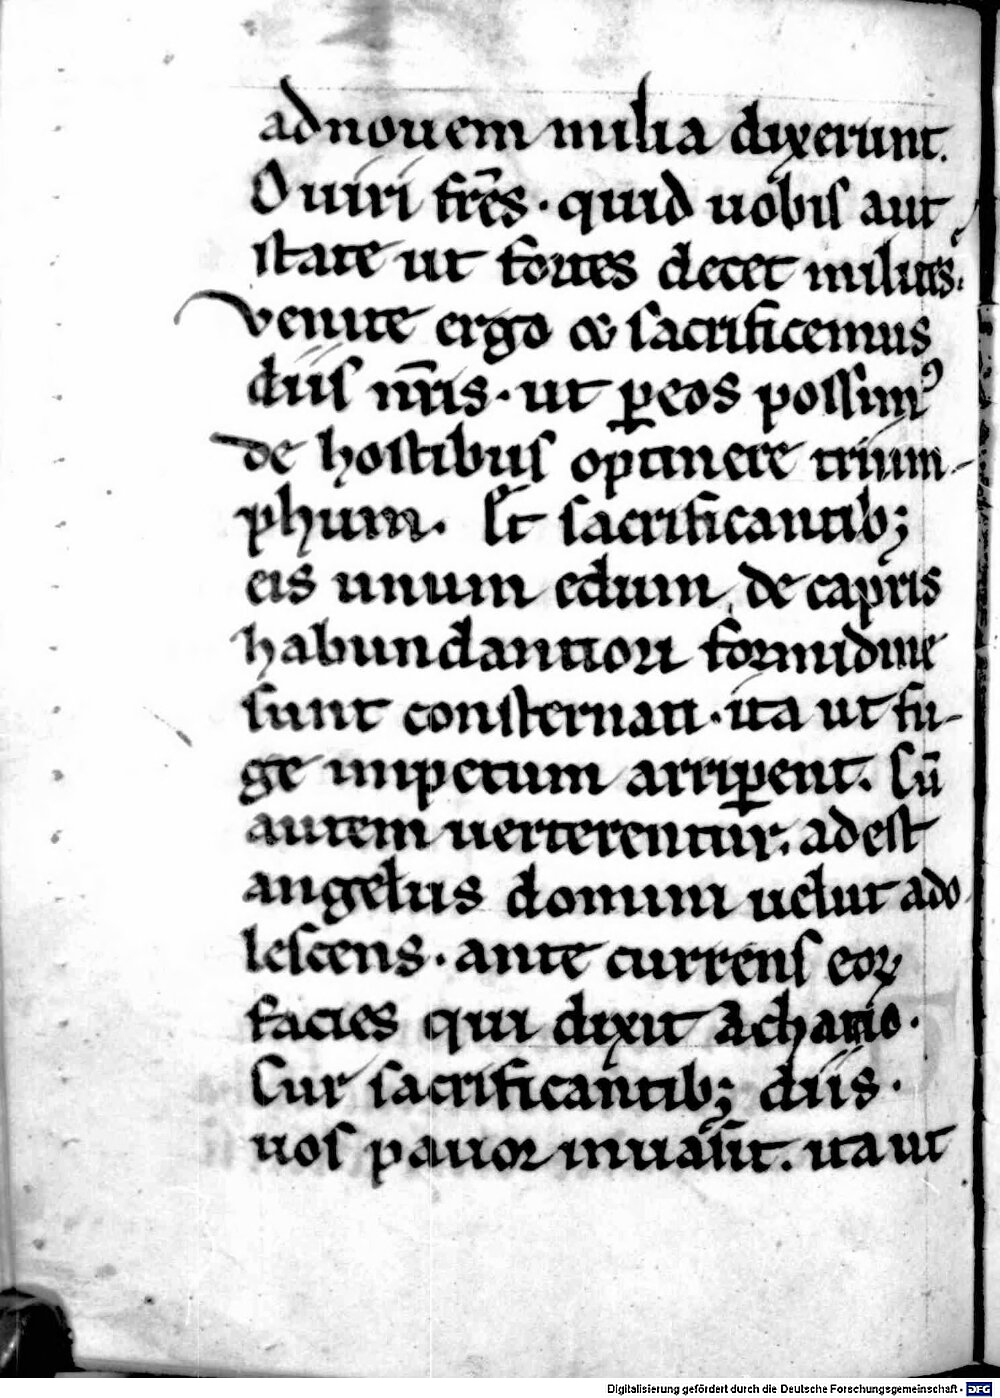 ad nouem milia dixerunt.
O uiri fr̄es · quid uobis aut
state ut fortes decet milites.
venite ergo & sacrificemus
diis nr̄is · ut ꝑ eos possimꝰ
de hostibus optinere trium-
phum. Et sacrificantib;
eis unum edum de capris
habundantiori formidine
sunt consternati · ita ut fu-
ge impetum arriꝑent. Cū
autem uerterentur. adest
angelus domini uelut ado
lescens · ante currens eoꝝ
facies qui dixit achatio ·
Cur sacrificantib; diis ·
uos pauor inuasit. ita ut
Digitalisierung gefördert durch die Deutsche Forschungsgemeinschaft - DFG